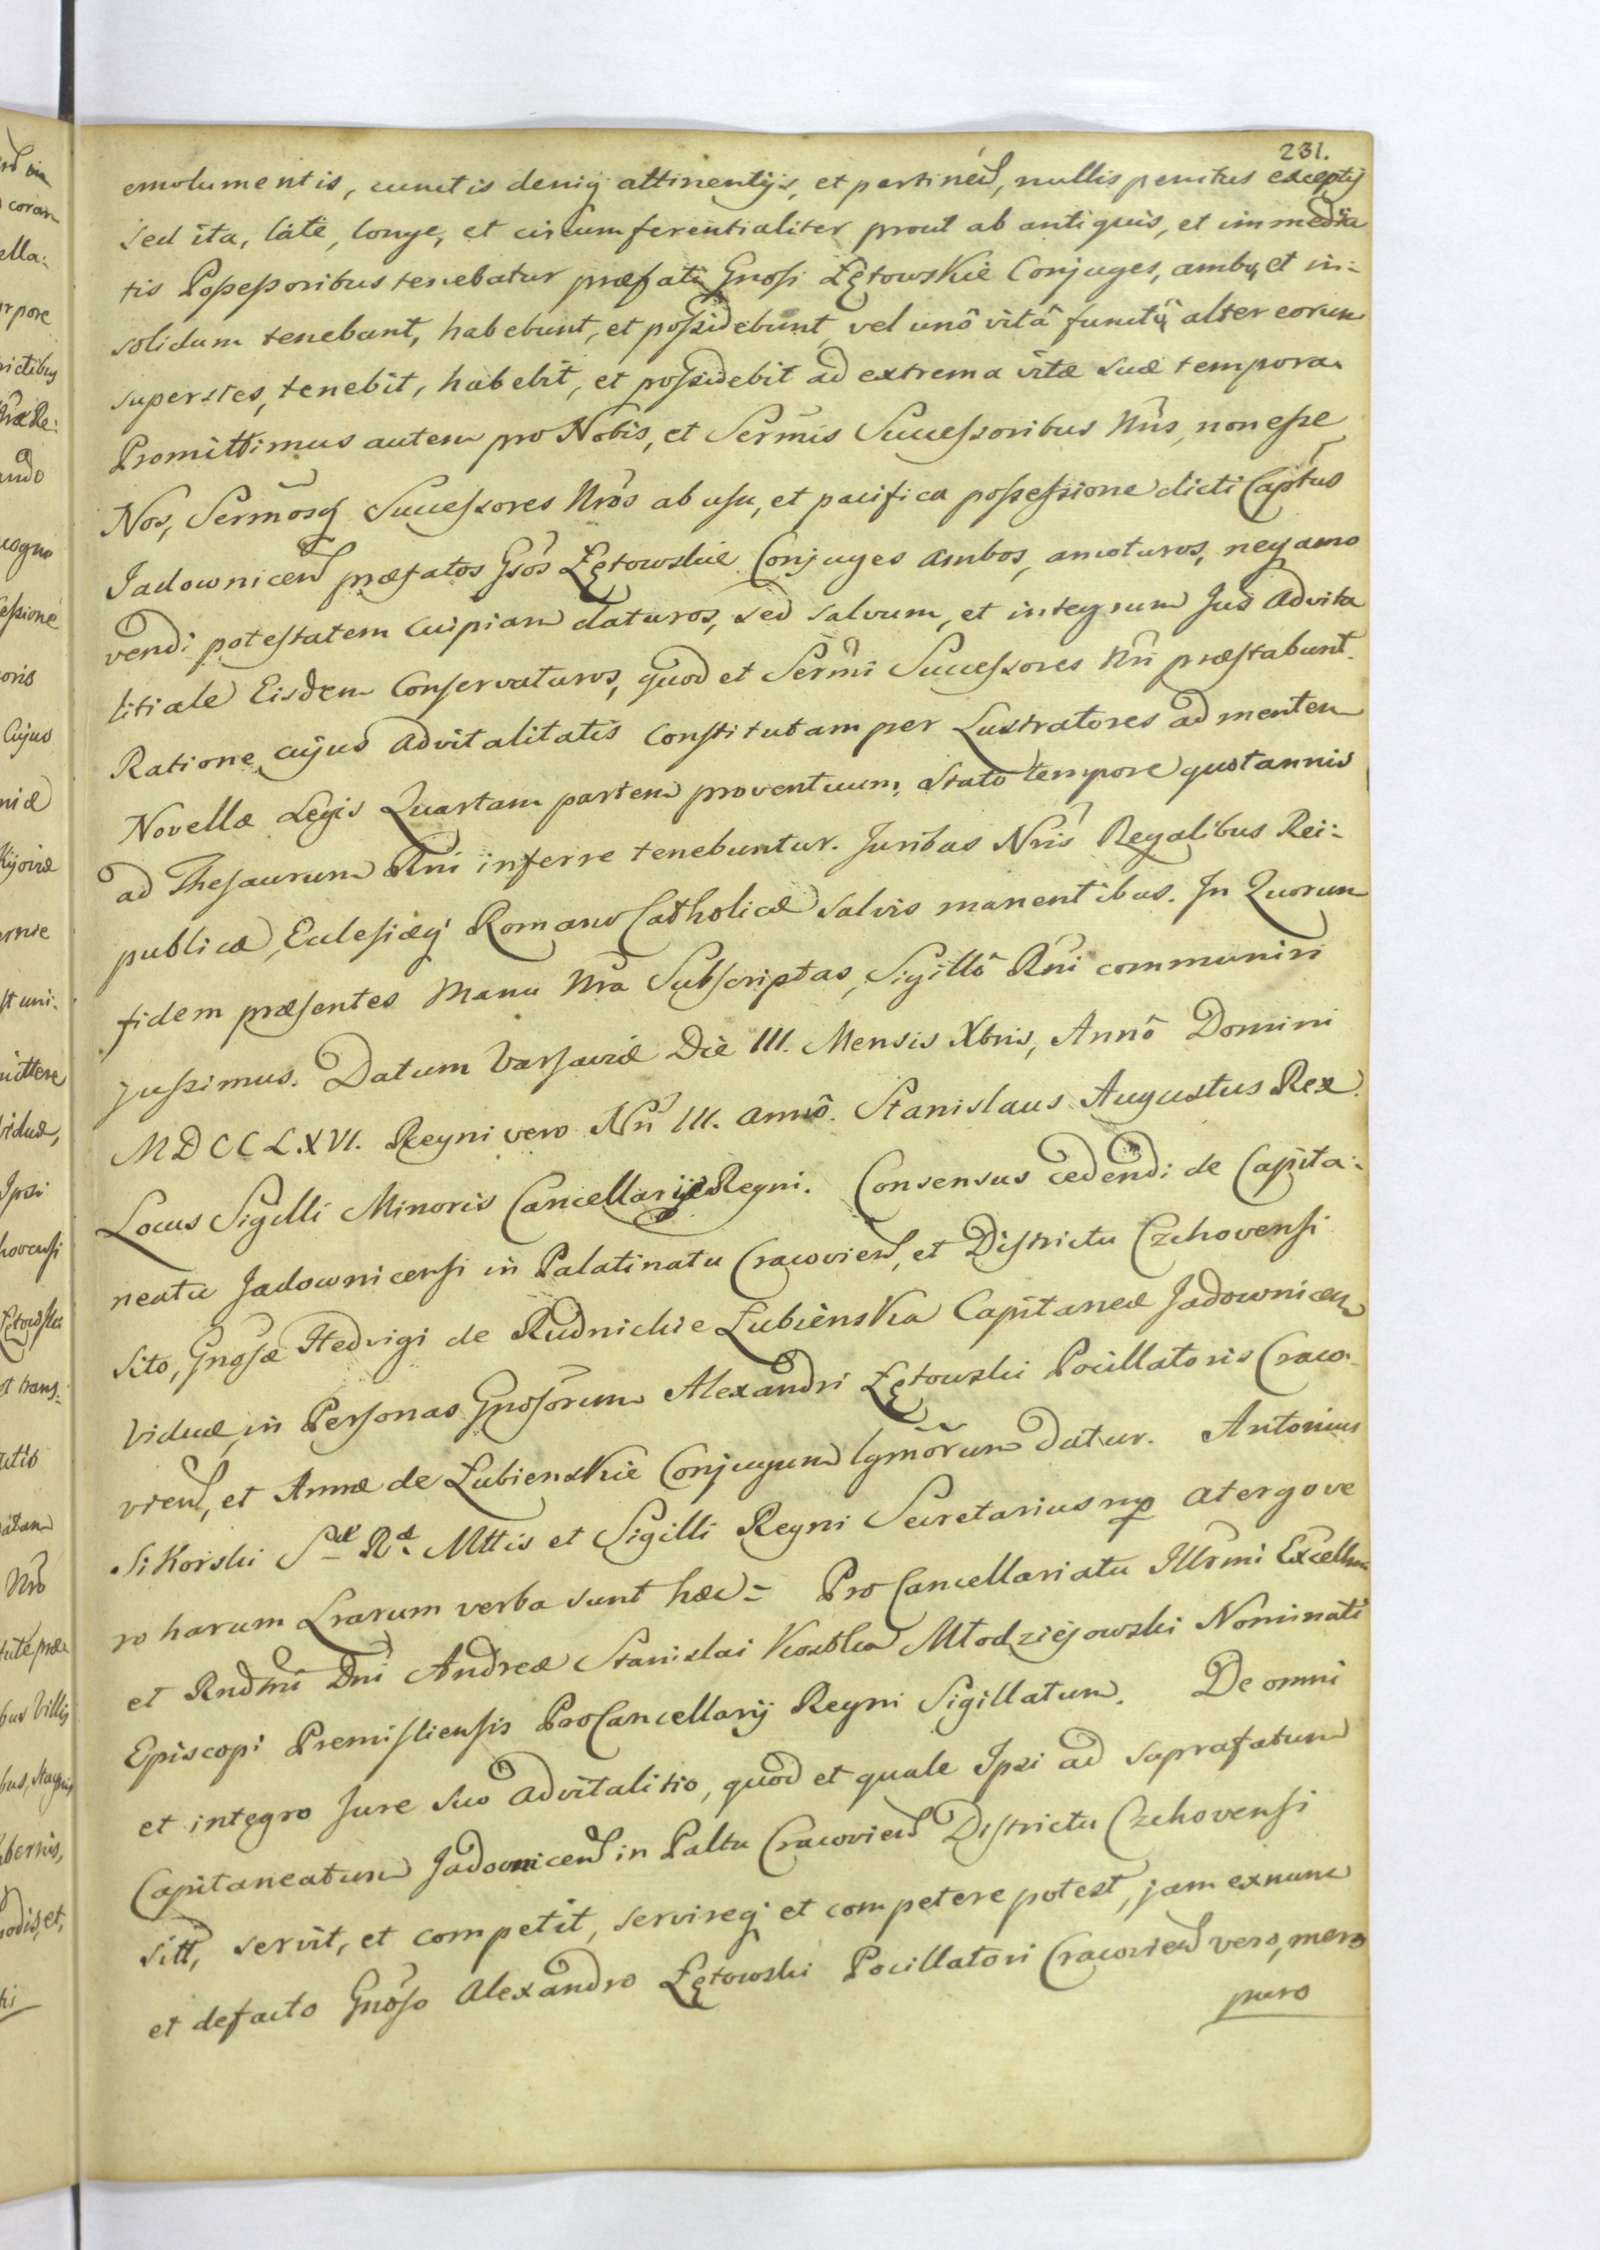 231.
emolumentis, cunctis deniq attinentijs, et pertineñ, nullis penitus exceptis
sed ita, latè, longe, et circumferentialiter prout ab antiquis, et immedia
tis Possessoribus tenebatur præfati Gnosi Łętowskie Conjuges, ambo et in-
solidum tenebunt, habebunt, et possidebunt, vel unô vitâ functô alter eorum
superstes, tenebit, habebit, et possidebit ad extrema vitæ suæ tempora.
Promittimus autem pro Nobis, et Sermis Successoribus Nris, non esse
Nos, Sermosq Successores Nros ab usu, et pacifica possessione dicti Captus
Jadowniceñ præfatos Gsos Łętowskie Conjuges ambos, amoturos, neq amo
vendi potestatem cuipiam daturos, sed salvum, et integrum Jus Advita
litiale Eisdem Conservaturos, quod et Sermi Successores Nri præstabunt.
Ratione cujus advitalitatis Constitutam per Lustratores ad mentem
Novellæ Legis Quartam partem proventuum, stato tempore quotannis
ad Thesaurum Rni inferre tenebuntur. Juribus Nris Regalibus Rei-
publicæ, Eclesiæq Romano Catholicæ salvis manentibus. In Quorum
fidem præsentes Manu Nra Subscriptas, Sigillô Rni communiri
jussimus. Datum Varsaviæ Die III. Mensis Xbris, Annô Domini
MDCCLXVI. Regni vero Nri III. annô. Stanislaus Augustus Rex.
Locus Sigilli Minoris Cancellariæ Regni. Consensus cedendi de Capita-
neatu Jadownicensi in Palatinatu Cracovieñ, et Districtu Czchovensi
Sito, Gnosæ Hedvigi de Rudnickie Łubieńska Capitaneæ Jadowniceñ
Viduæ, in Personas Gnosorum Alexandri Łętowski Pocillatoris Craco-
vieñ, et Annæ de Łubienskie Conjugum lgmorum datur. Antonius
Sikorski Sæ Ræ Mttis et Sigilli Regni Secretarius mp atergo ve
ro harum Lrarum verba sunt hæc = Pro Cancellariatu Illrmi Excellmi
et Rndmi Dni Andreæ Stanislai Kostka Młodziejowski Nominati
Episcopi Premisliensis ProCancellarij Regni Sigillatum. De omni
et integro Jure suo advitalitio, quod et quale Ipsi ad suprafatum
Capitaneatum Jadowniceñ in Paltu Cracovieñ Districtu Czchovensi
Sitt, servit, et competit, servireq et competere potest, jam exnunc
et defacto Gnoso Alexandro Łętowski Pocillatori Cracovieñ vero, mero
puro